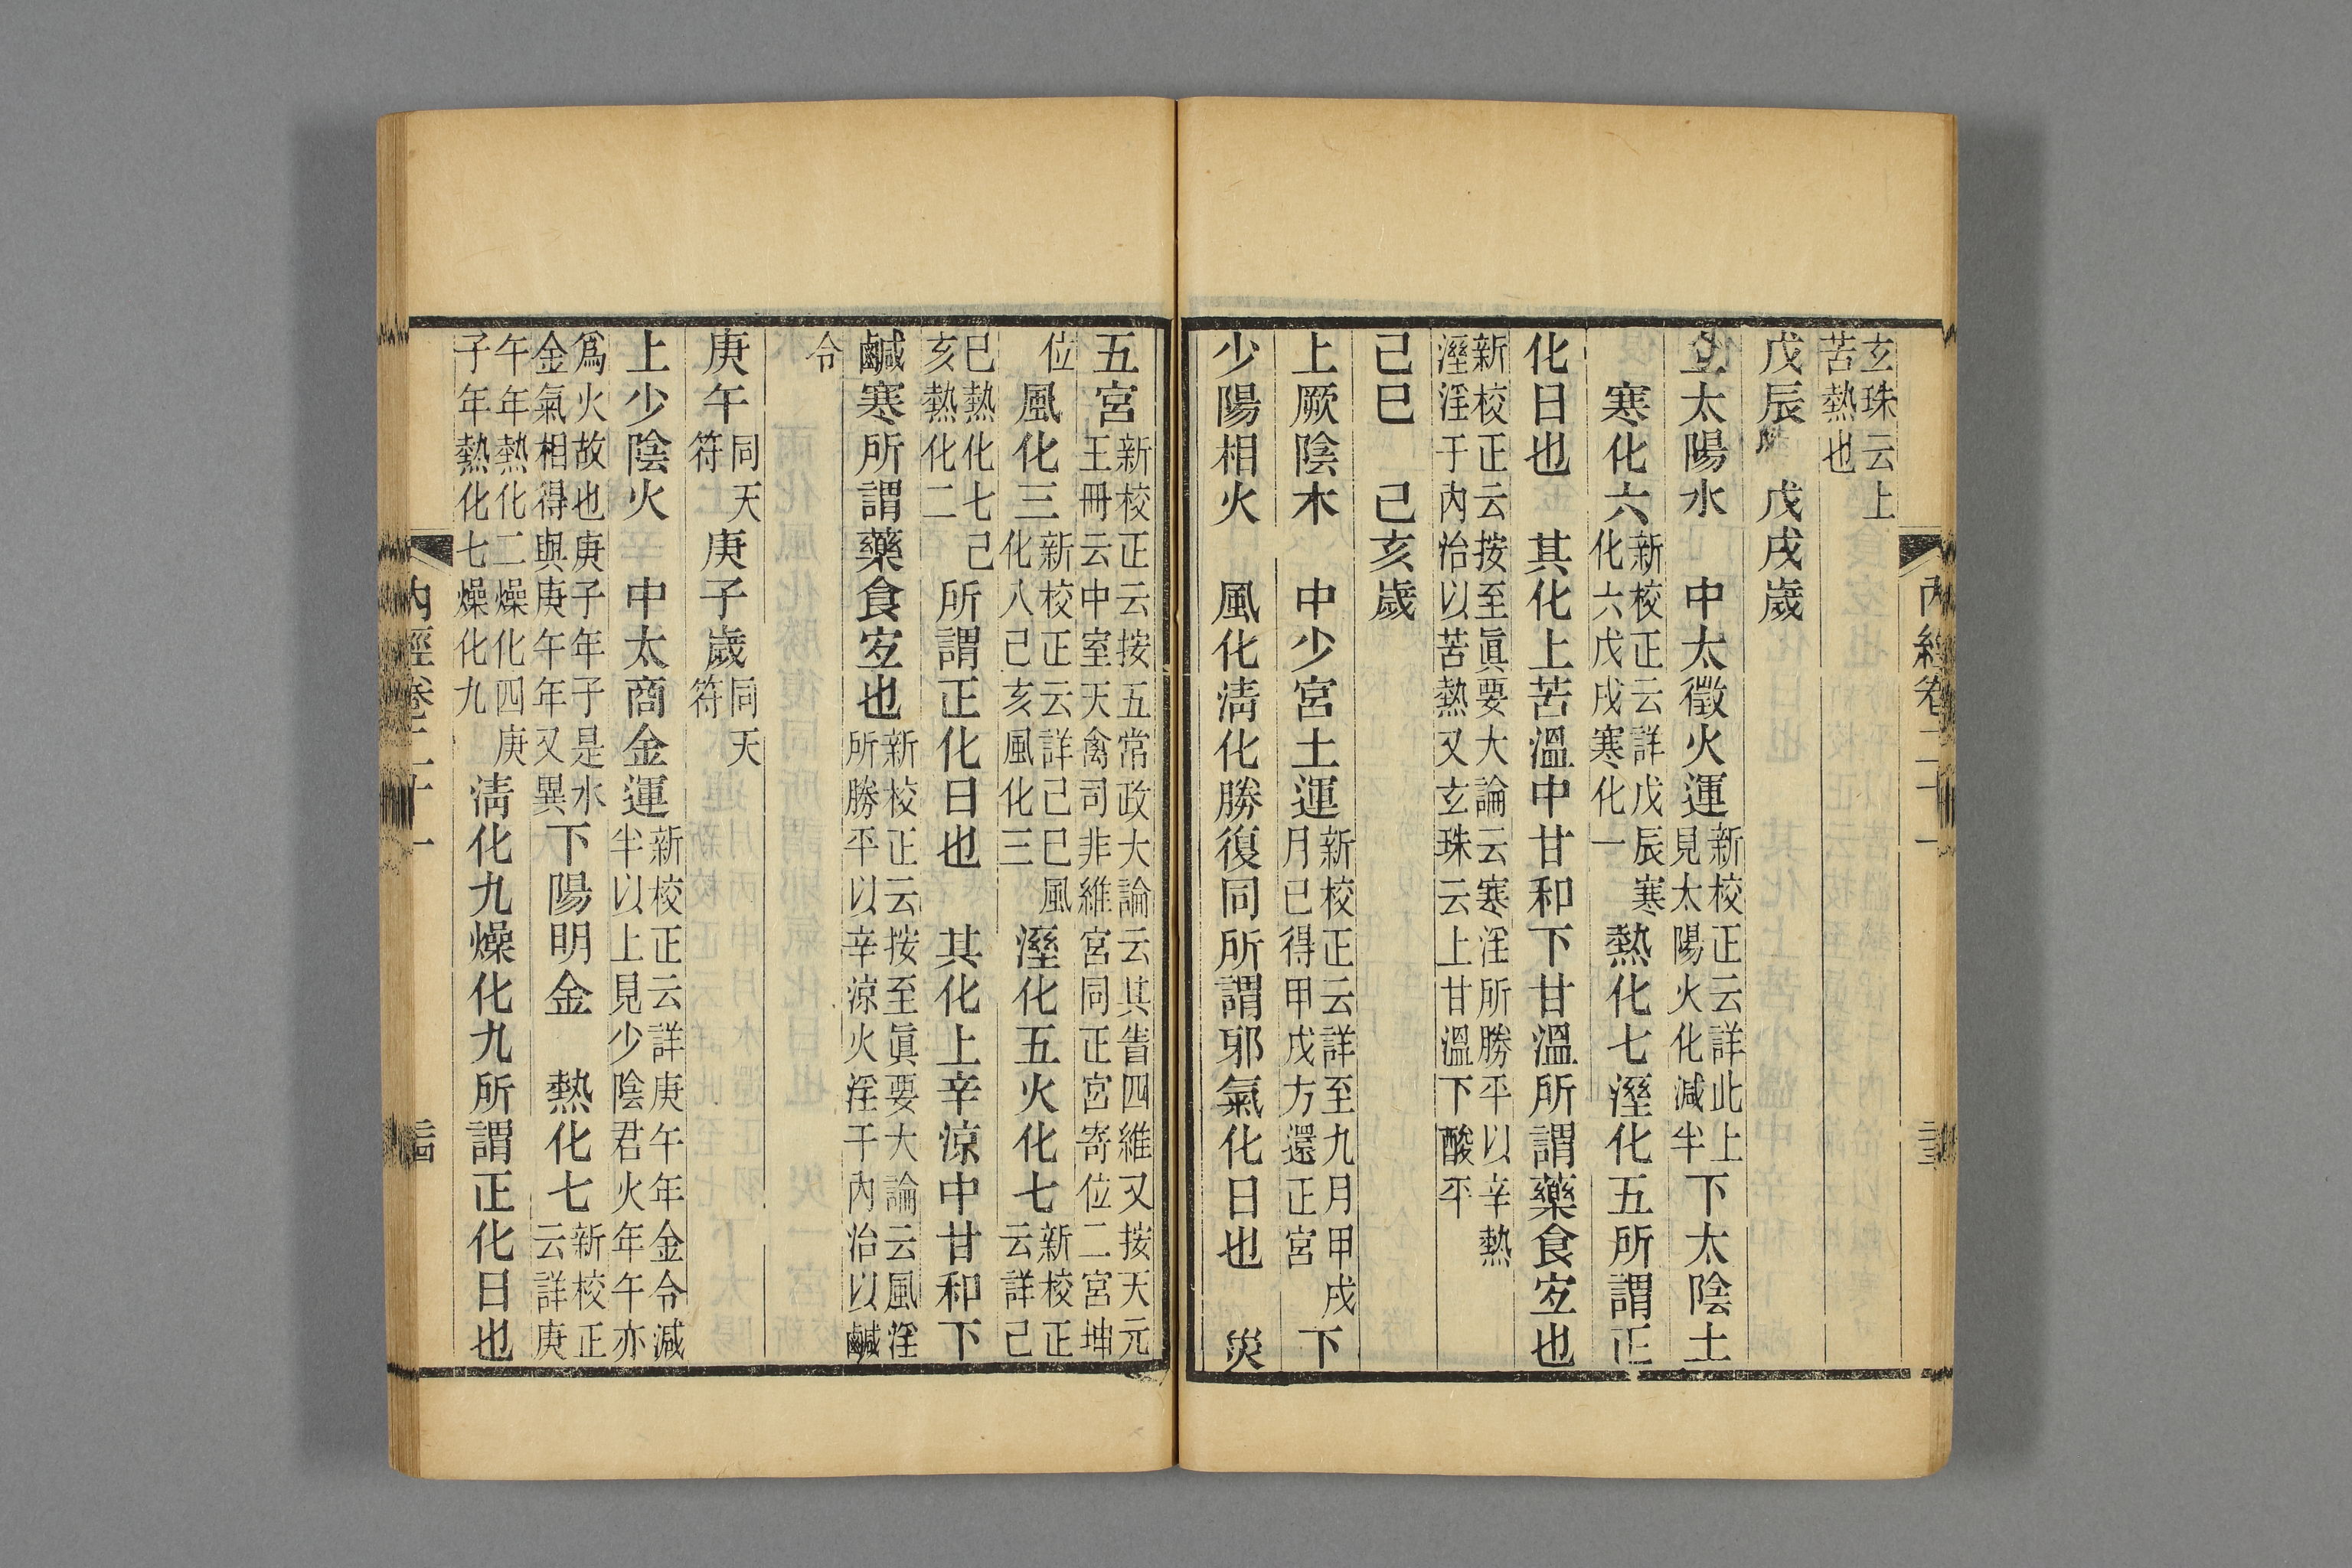 內經卷二十一
玄珠云上苦熱也
戊辰 戊戌歲
太陽水 中太徵火運新校正云詳此上見太陽火化減半下太陰土
寒化六新校正云詳戊辰寒化六戊戌寒化一熱化七溼化五所謂正
化日也 其化上苦溫中甘和下甘溫所謂藥食宐也
新校正云按至眞要大論云寒淫所勝平以辛熱溼淫于內治以苦熱又玄珠云上甘溫下酸平
己巳 己亥歲
上厥陰木 中少宮土運新校正云詳至九月甲戌月已得甲戌方還正宮下
少陽相火 風化清化勝復同所謂邪氣化日也 災
五宮新校正云按五常政大論云其眚四維又按天元王冊云中室天禽司非維宮同正宮寄位二宮坤
位風化三新校正云詳己巳風化八己亥風化三溼化五火化七新校正云詳己
巳熱化七己亥熱化二所謂正化日也 其化上辛涼中甘和下
鹹寒所謂藥食宐也新校正云按至眞要大論云風淫所勝平以辛涼火淫于內治以鹹
令
庚午同天符庚子歲同天符
上少陰火 中太商金運新校正云詳庚午年金令減半以上見少陰君火年午亦
爲火故也庚子年子是水金氣相得與庚午年又異下陽明金 熱化七新校正云詳庚
午年熱化二燥化四庚子年熱化七燥化九清化九燥化九所謂正化日也
內經卷二十一